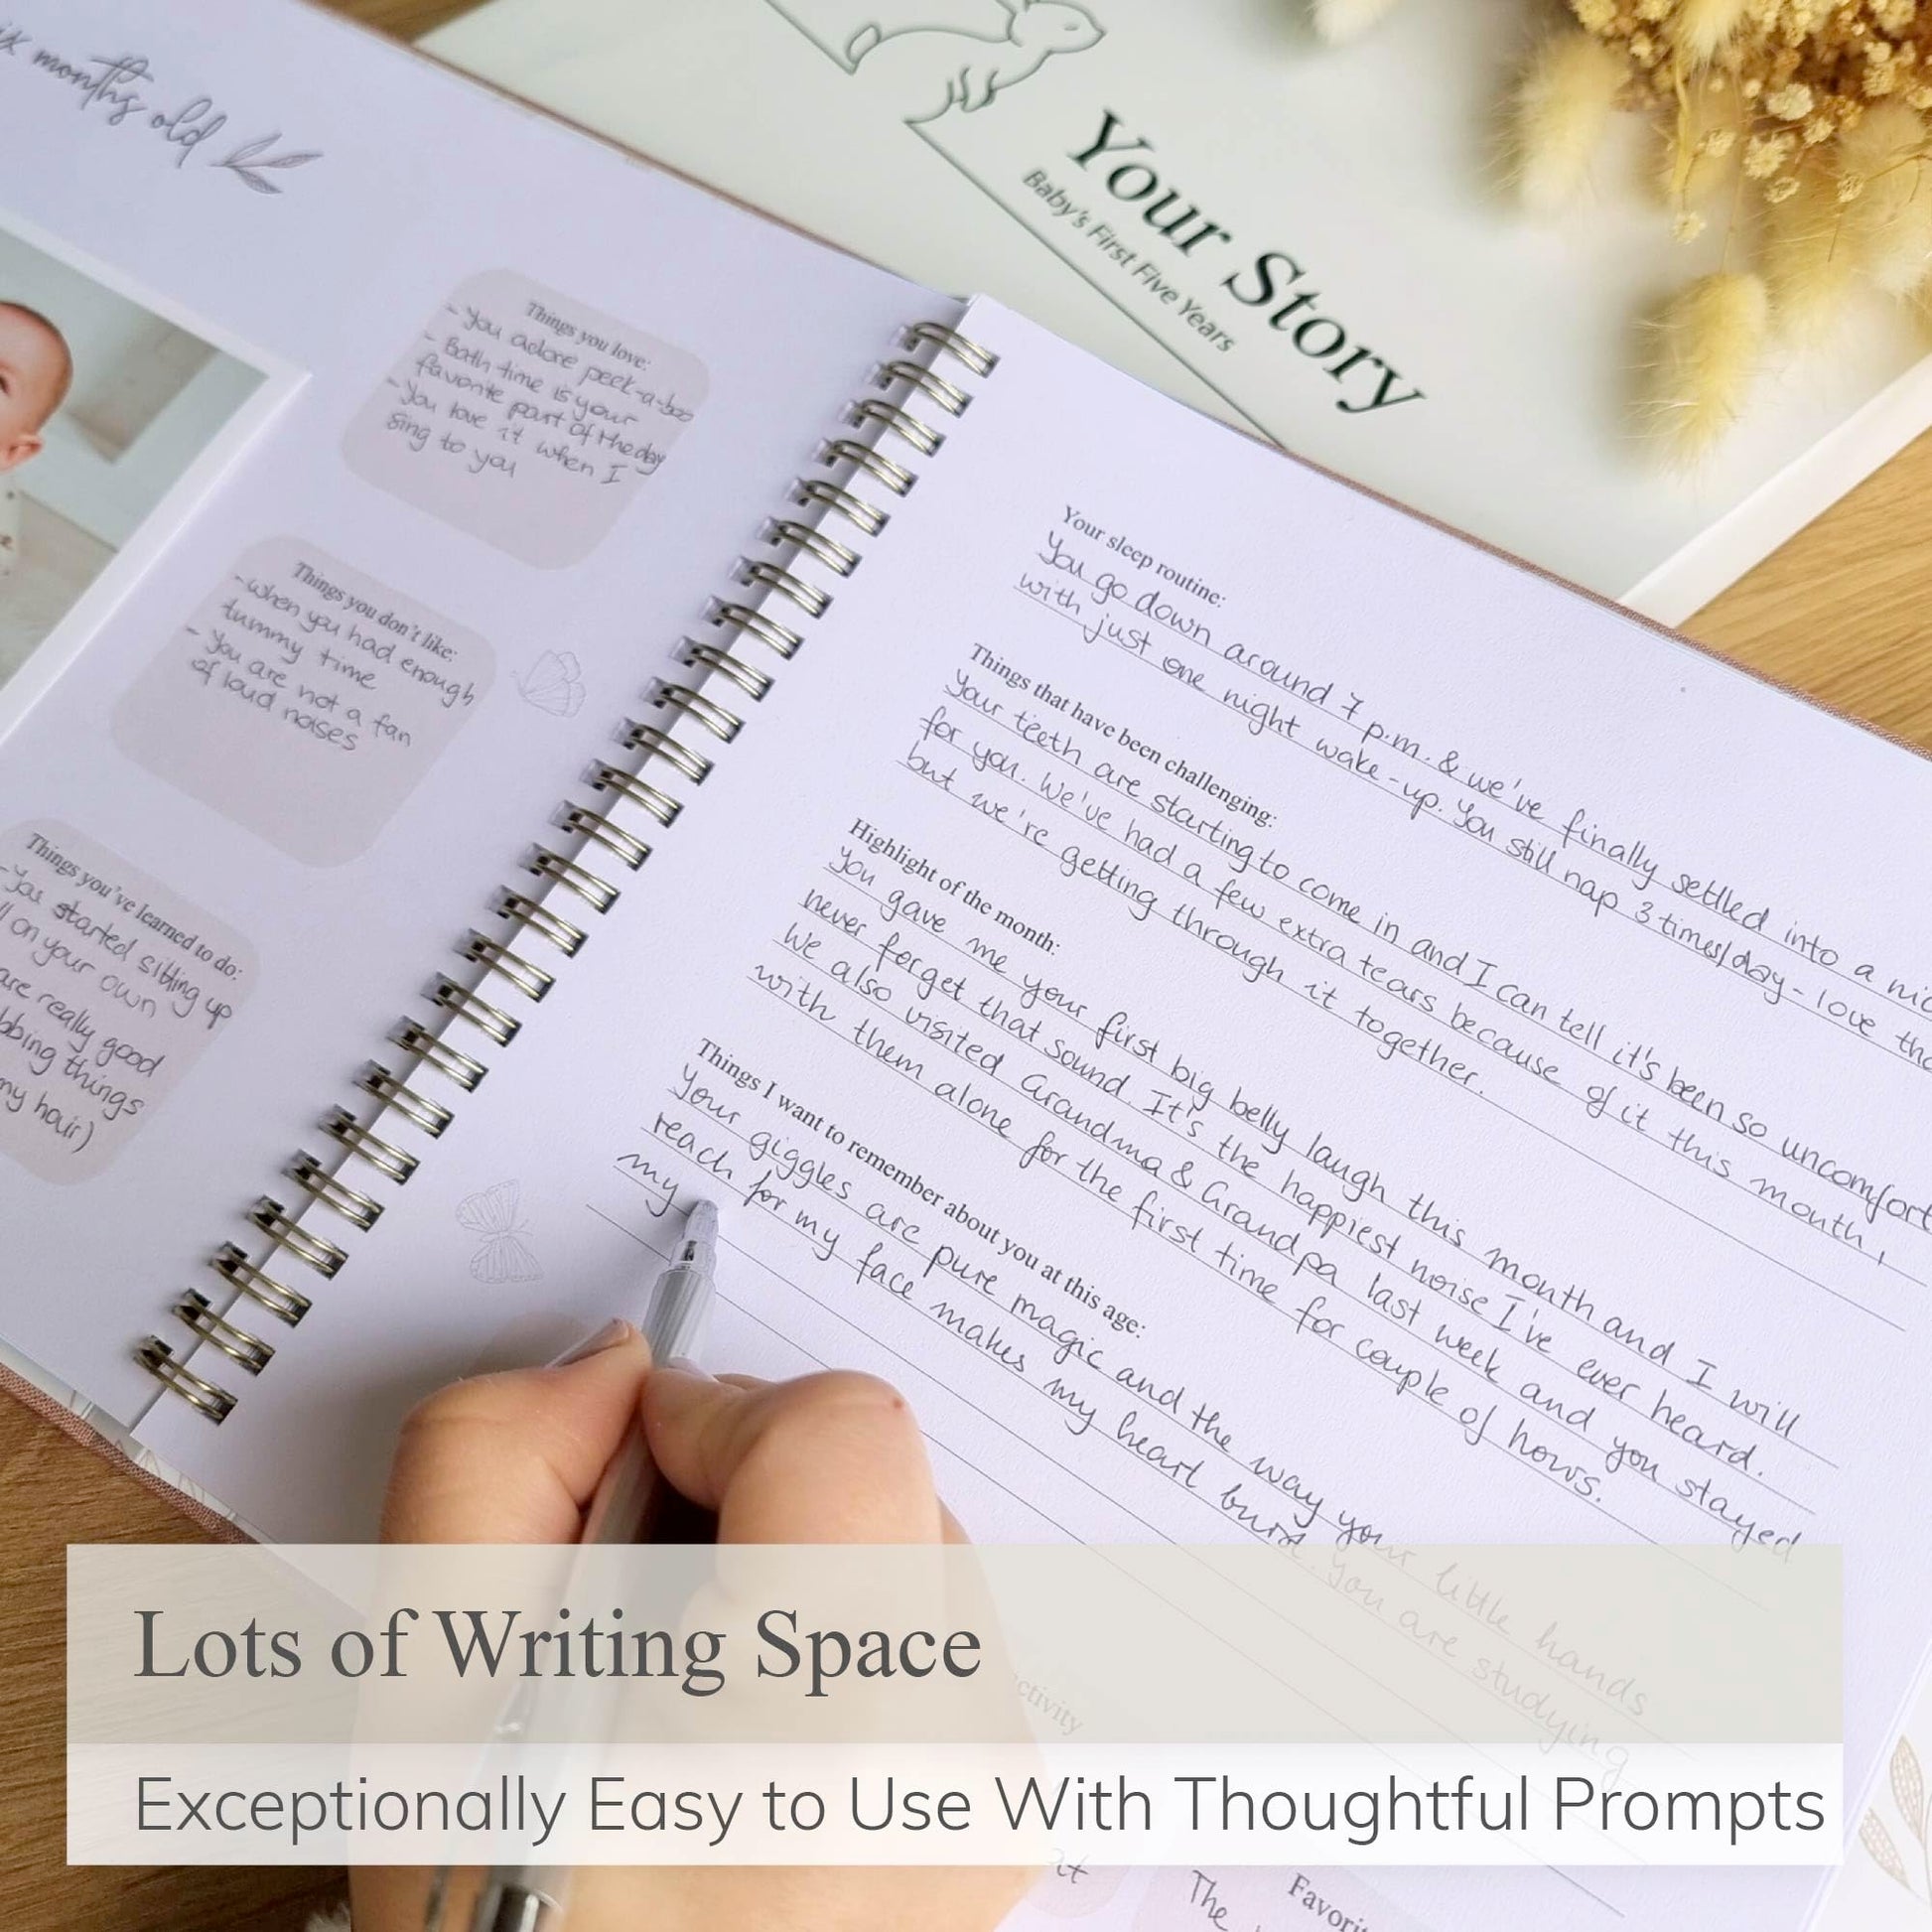 months old
Your Story
Baby's First Five Years
Things you love:
- You adore peek-a-boo
- Bath time is your
favorite part of the day
- You love it when I
sing to you
Things you don't like:
- when you had enough
tummy time
- You are not a fan
of loud noises
Things you've learned to do:
- You started sitting up
on your own
are really good
things
my hair)
Your sleep routine:
You go down around 7 p.m. & we've finally settled into a
with just one night wake-up. You still nap 3 times/day - love
Things that have been challenging:
Your teeth are starting to come in and I can tell it's been so
for you. We've had a few extra tears because of it this month,
but we're getting through it together.
Highlight of the month:
You gave me your first big belly laugh this month and I will
never forget that sound. It's the happiest noise I've ever heard.
We also visited Grandma & Grandpa last week and you stayed
with them alone for the first time for couple of hours.
Things I want to remember about you at this age:
Your giggles are pure magic and the way your little hands
reach for my face makes my heart burst. You are studying
my
Lots of Writing Space
Exceptionally Easy to Use With Thoughtful Prompts
The